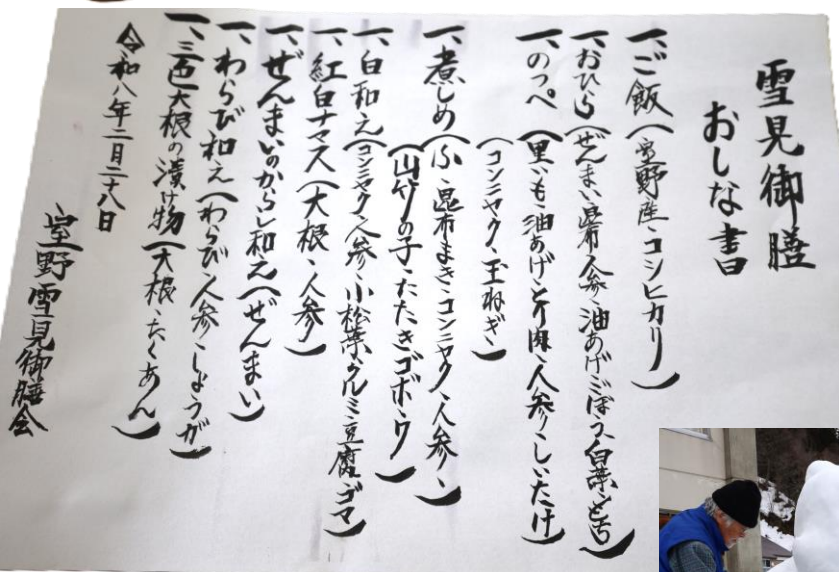 雪見御膳
おしな書
一、ご飯（室野産、コシヒカリ）
一、おひら（ぜんまい、昆布、人参、油あげ、ごぼう、白菜、とち）
一、のっぺ（里いも、油あげ、とり肉、人参、しいたけ
コンニャク、玉ねぎ）
一、煮しめ（ふ、昆布まき、コンニャク、人参、
山竹の子、たたきゴボウ）
一、白和え（コンニャク、人参、小松菜、クルミ、豆腐、ゴマ）
一、紅白ナマス（大根、人参）
一、ぜんまいのからし和え（ぜんまい）
一、わらび和え（わらび、人参、しょうが）
一、三色大根の漬け物（大根、たくあん）
令和八年二月二十八日
室野雪見御膳会